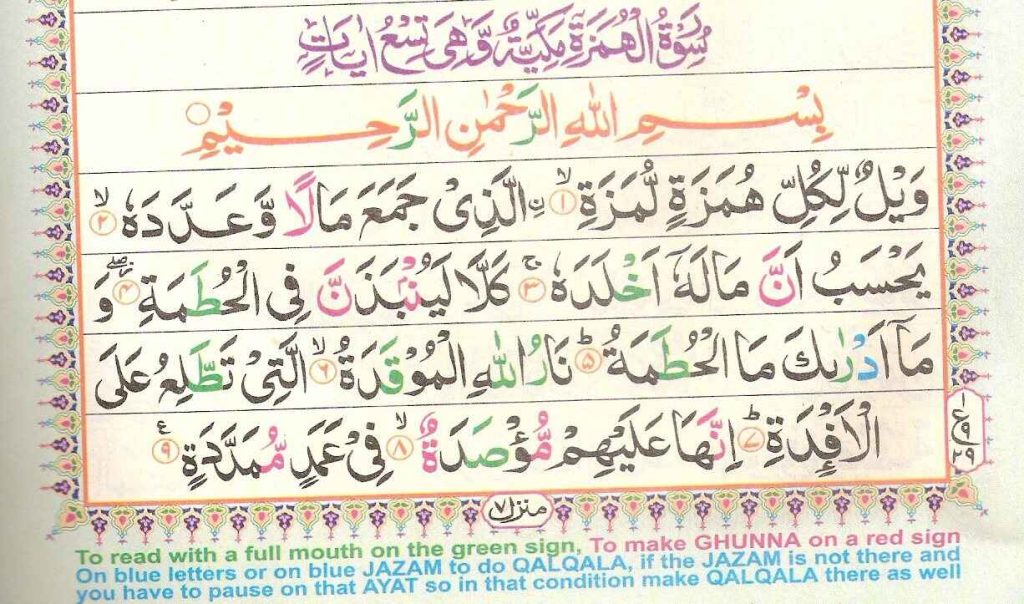 سُوْرَةُ الْهُمَزَةِ مَكِّيَّةٌ وَّهِىَ تِسْعُ اٰيَاتٍ
بِسْمِ اللهِ الرَّحْمٰنِ الرَّحِيْمِ ○
وَيْلٌ لِّكُلِّ هُمَزَةٍ لُّمَزَةِۙ ۱ ۨالَّذِىْ جَمَعَ مَالًا وَّعَدَّدَهٗۙ ۲
يَحْسَبُ اَنَّ مَالَهٗۤ اَخْلَدَهٗۚ ۳ كَلَّا لَيُنْۢبَذَنَّ فِى الْحُطَمَةِۖ ۴ وَ
مَاۤ اَدْرٰىكَ مَا الْحُطَمَةُؕ ۵ نَارُ اللهِ الْمُوْقَدَةُۙ ۶ الَّتِىْ تَطَّلِعُ عَلَى
الْاَفْـِٕدَةِؕ ۷ اِنَّهَا عَلَيْهِمْ مُّؤْصَدَةٌۙ ۸ فِىْ عَمَدٍ مُّمَدَّدَةٍ ۹ ع
۱
ع ۹
۲۹
منزل ۷
To read with a full mouth on the green sign, To make GHUNNA on a red sign
On blue letters or on blue JAZAM to do QALQALA, if the JAZAM is not there and
you have to pause on that AYAT so in that condition make QALQALA there as well